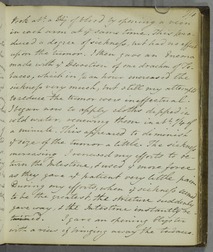 took at a ℔ of blood by opening a vein
in each arm at the same time; this pro
duced a degree of sickness, but had no effect
upon the tumor. I then gave an Enema
made with a decoction of one drachm of To
bacco, which in an hour increased the
sickness very much, but still my attempts
to reduce the tumor were ineffectual.
I began now to apply cloths dipped in
cold water, renewing them in each ½ of
a minute. This appeared to diminish
the size of the tumor a little. The sickness
increasing I renewed my efforts to re
turn the Intestine, & used more force
as they gave the patient very little pain
During my efforts, when the sickness seemed
to be the greatest, the stricture suddenly
gave way & the Intestine instantly re
turned. I gave an opening
with a view of bringing away the tobacco